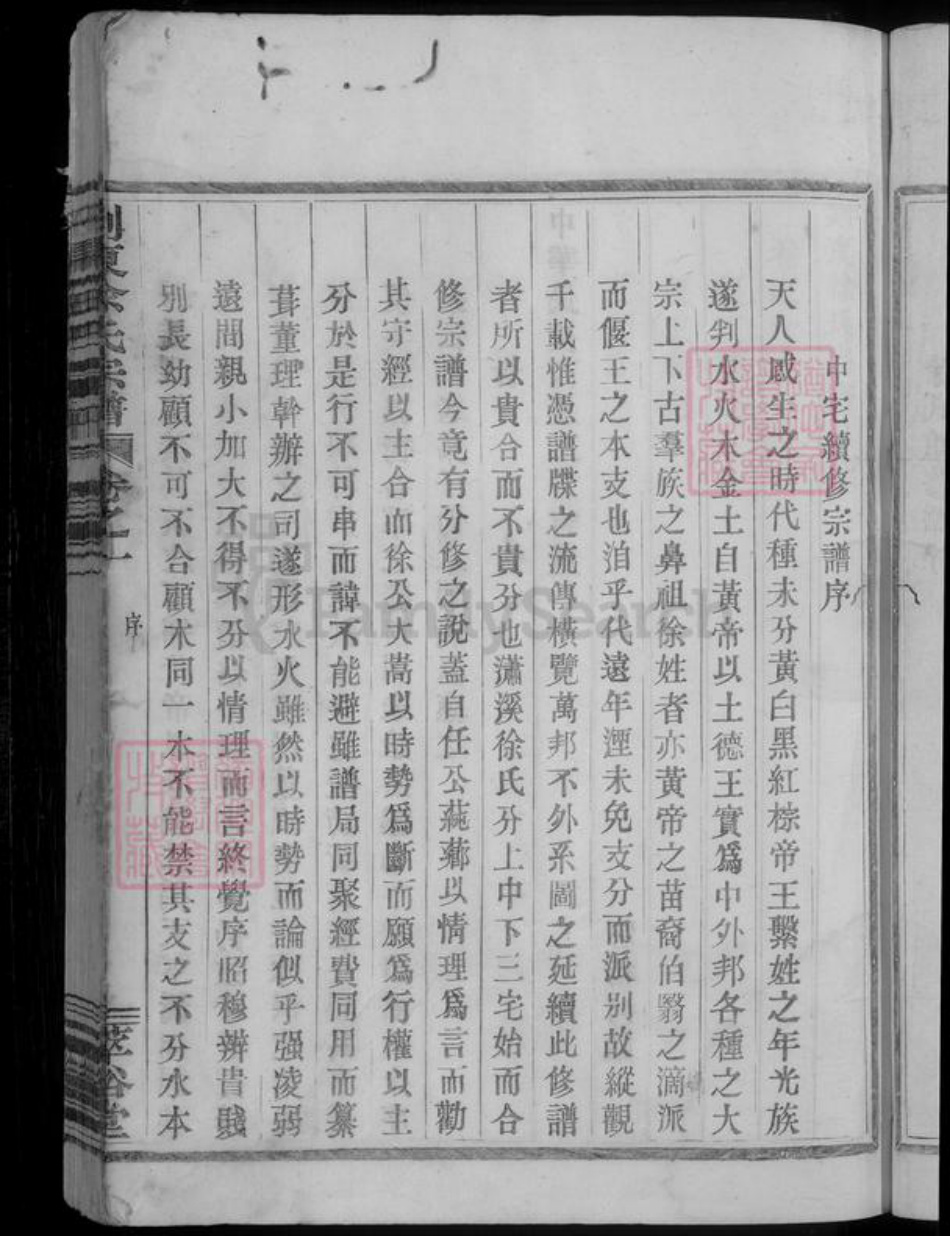 中宅續修宗譜序
天人感生之時代種未分黃白黑紅棕帝王繫姓之年光族
遂判水火木金土自黃帝以土德王實為中外邦各種之大
宗上下古羣族之鼻祖徐姓者亦黃帝之苗裔伯翳之滴派
而偃王之本支也洎乎代遠年湮未免支分而派別故縱觀
千載惟憑譜牒之流傳橫覽萬邦不外系圖之延續此修譜
者所以貴合而不貴分也瀟溪徐氏分上中下三宅始而合
修宗譜今竟有分修之說蓋自任公蒓薌以情理爲言而勸
其守經以主合而徐公大嵩以時勢爲斷而願爲行權以主
分於是行不可串而諱不能避雖譜局同聚經費同用而纂
葺董理幹辦之司遂形水火雖然以時勢而論似乎强凌弱
遠間親小加大不得不分以情理而言終覺序昭穆辨貴賤
別長幼顧不可不合顧木同一本不能禁其支之不分水本
東徐氏宗譜
卷之一
序
萃裕堂
FamilySearch